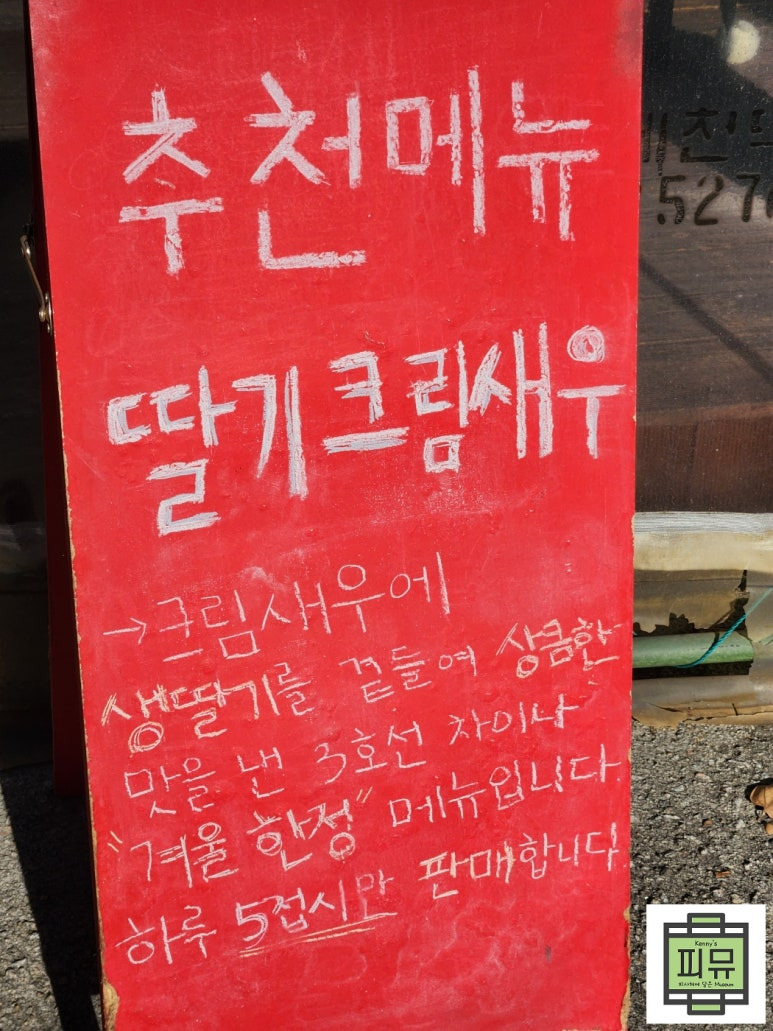 추천메뉴
딸기크림새우
→크림새우에
생딸기를 곁들여 상큼한
맛을 낸 3호선 차이나
"겨울 한정" 메뉴입니다.
하루 5접시만 판매합니다.
527
Kenny's
피뮤
Museum